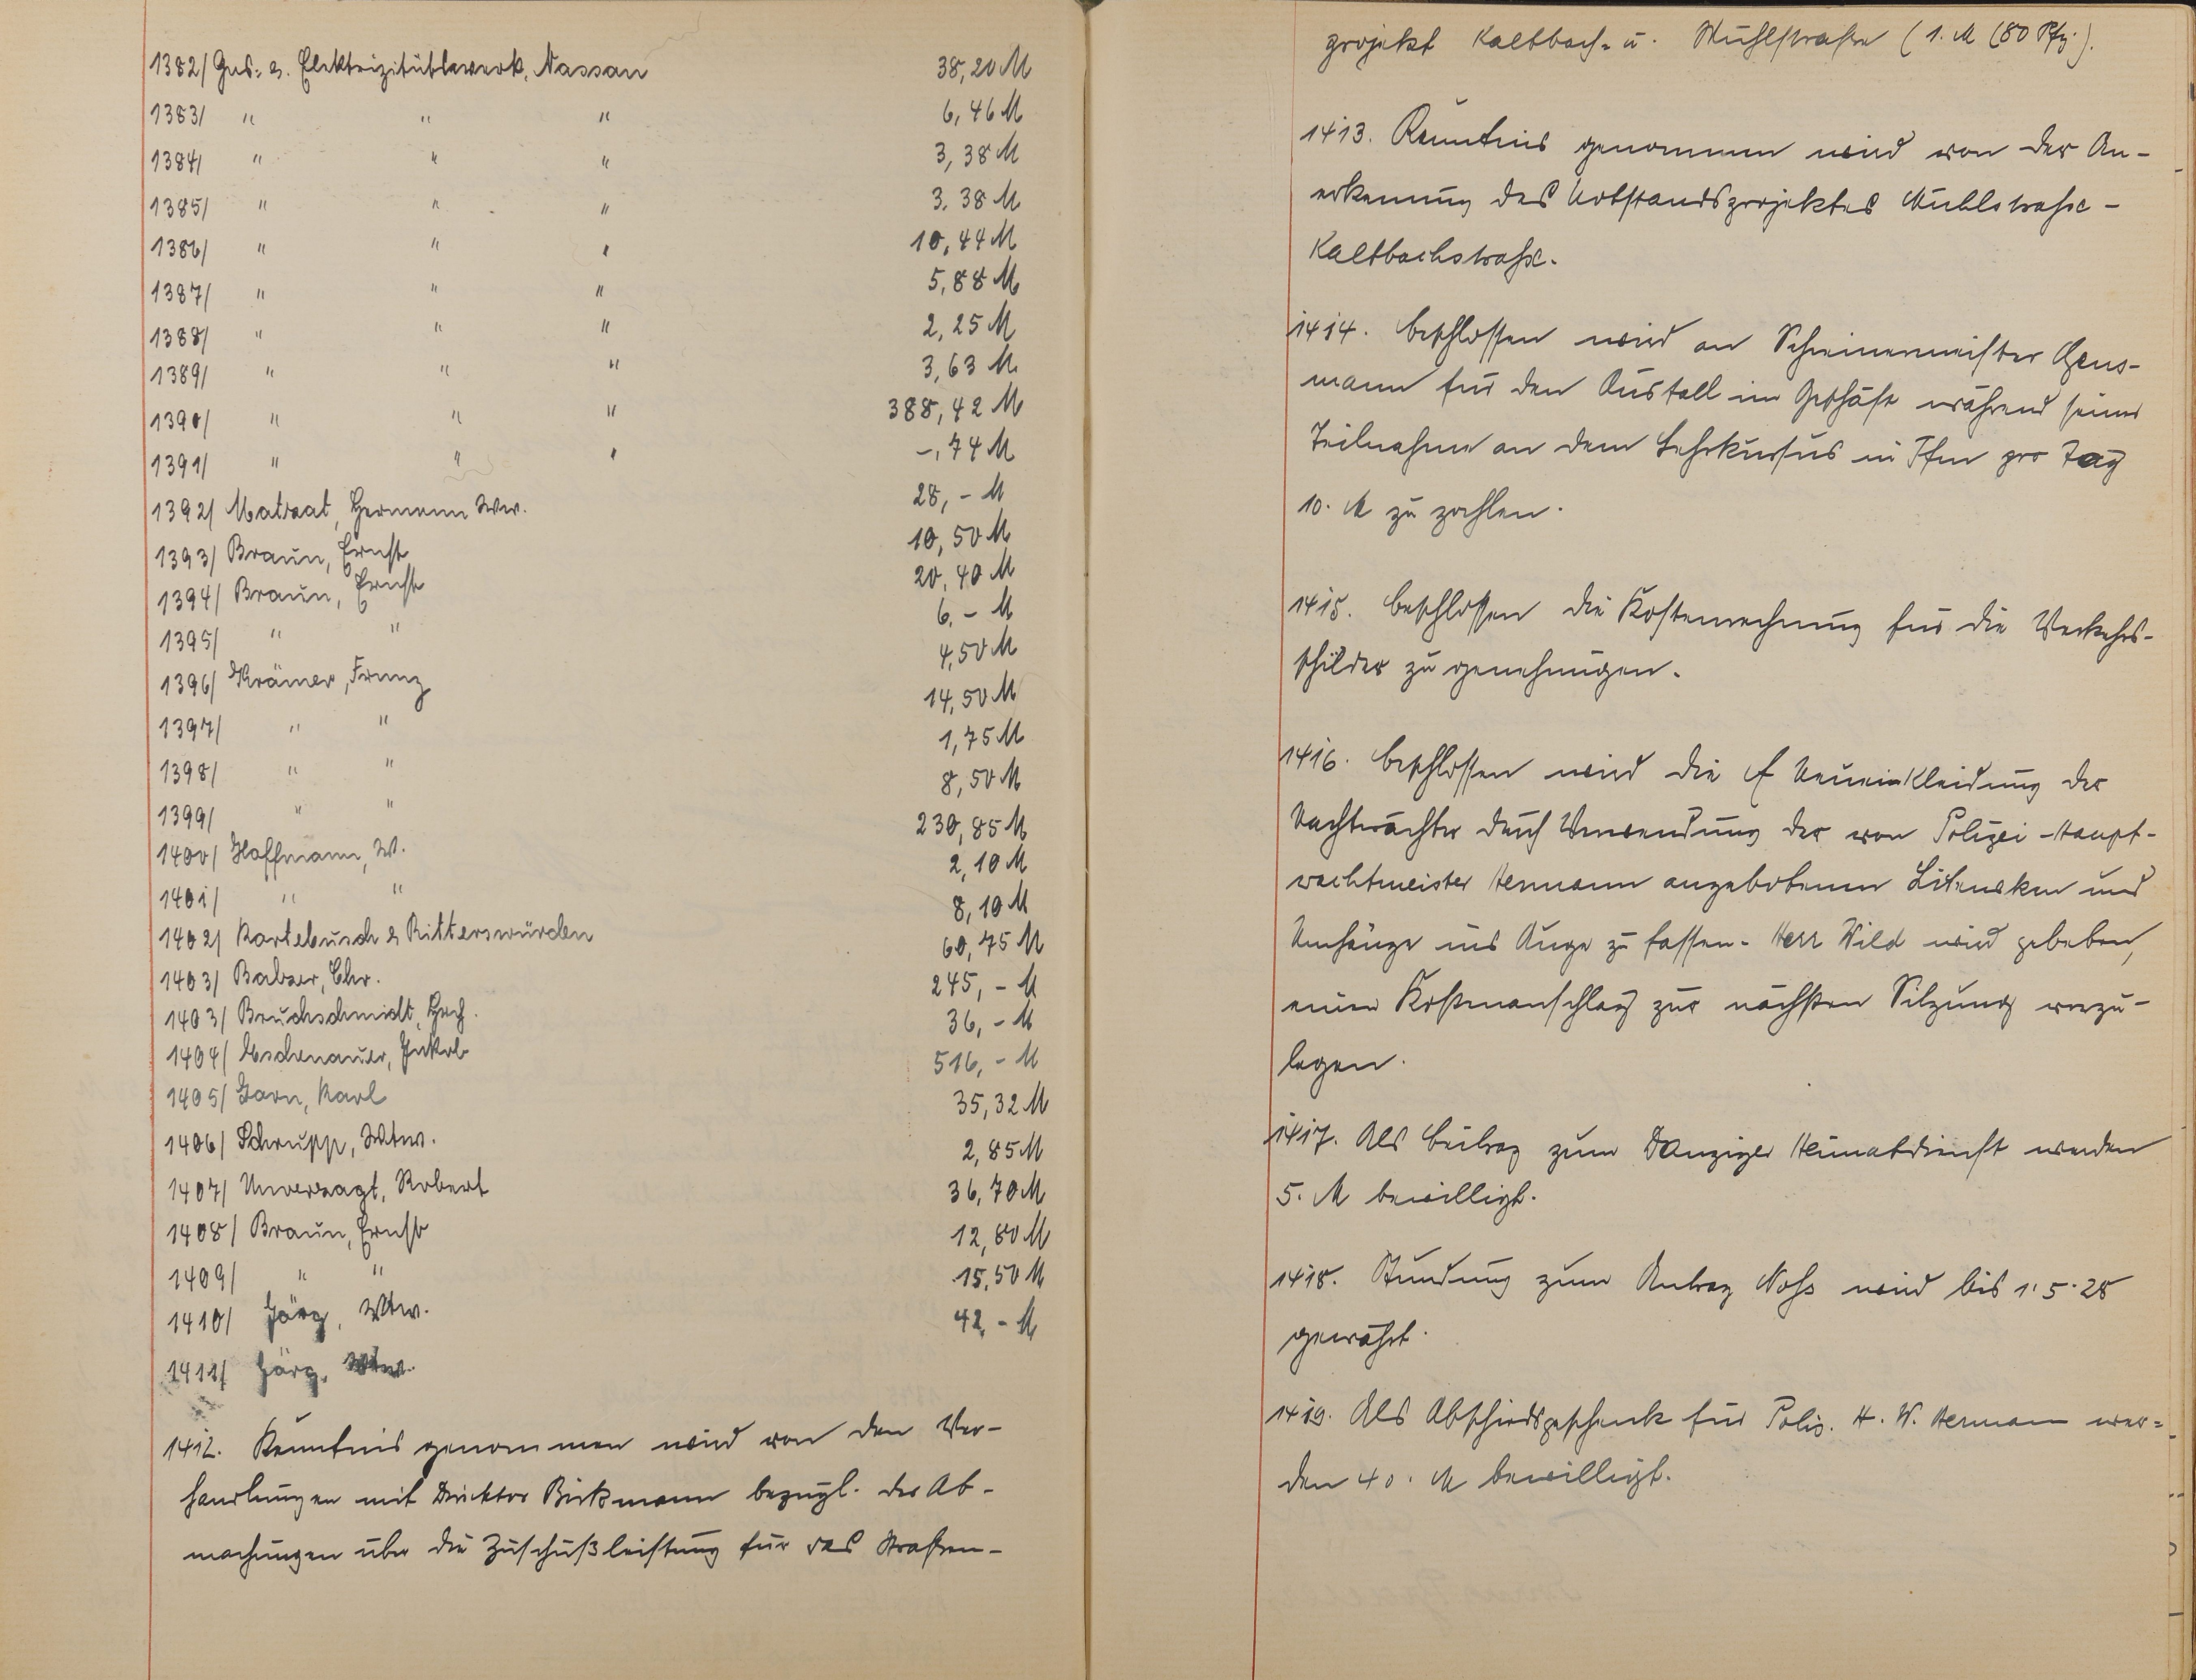 1382/ Gas- u. Elektrizitätswerk, Nassau 38,20 M
1383/ " " " 6,46 M
1384/ " " " 3,38 M
1385/ " " " 3.38 M
1386/ " " " 10,44 M
1387/ " " " 5,88 M
1388/ " " " 2,25 M
1389/ " " " 3,63 M
1390/ " " " 388,42 M
1391/ " " " -,74 M
1392/ Matraat, Hermann Ww. 28,- M
1393/ Braun, Ernst 10,50 M
1394/ Braun, Ernst 20,40 M
1395/ " " 6,- M
1396/ Krämer, Franz 4,50 M
1397/ " " 14,50 M
1398/ " " 1,75 M
1399/ " " 8,50 M
1400/ Hoffmann, W. 230,85 M
1401/ " " 2,10 M
1402/ Kortebusch & Ritterswürden 8,10 M
1403/ Balzer, Chr. 60,75 M
1403/ Bruchschmidt, Hch. 245,- M
1404/ Eschenauer, Jakob 36,- M
1405/ Garn, Karl 516,- M
1406/ Schrupp, Wtw. 35,32 M
1407/ Unverzagt, Robert 2,85 M
1408/ Braun, Ernst 36,70 M
1409/ " " 12,80 M
1410/ Jörg, Wtw. 15,50 M
1411/ Jörg, Wtw. 42,- M
1412. Kenntnis genommen wird von den Ver-
handlungen mit Direktor Birkmann bezügl. der Ab-
machungen über die Zuschußleistung für das Straßen-
projekt Kaltbach- u. Mühlstraße (1. M (80 Pfg.).
1413. Kenntnis genommen wird von der An-
erkennung des Notstandsprojektes Mühlstraße-
Kaltbachstraße.
1414. Beschlossen wird an Schreinermeister Hens-
mann für den Ausfall im Geschäft während seiner
Teilnahme an dem Lehrkursus in Ffm pro Tag
10. M zu zahlen.
1415. Beschlossen die Kostenrechnung für die Verkehrs-
schilder zu genehmigen.
1416. Beschlossen wird die Neueinkleidung der
Nachtwächter durch Verwendung der von Polizei-Haupt-
wachtmeister Hermann angebotenen Litewken und
Umhänge ins Auge zu fassen. Herr Wild wird gebeten,
einen Kostenanschlag zur nächsten Sitzung vorzu-
legen.
1417. Als Beitrag zum Danziger Heimatdienst werden
5. M bewilligt.
1418. Stundung zum Antrag Noß wird bis 1.5.28
gewährt.
1419. Als Abschiedsgeschenk für Poliz. H. W. Hermann wer-
den 40. M bewilligt.